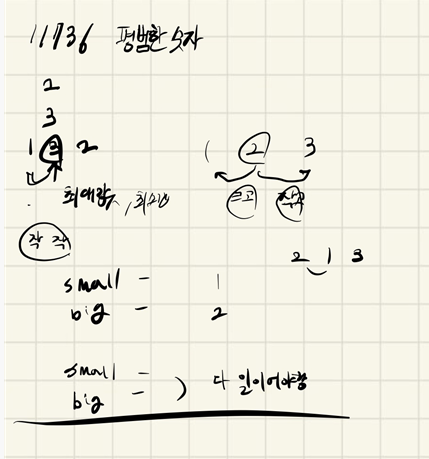 11736 평범한 숫자
2
3
1 3 2
1 2 3
최대값, 최소값
크고 작고
작 작
2 1 3
small - 1
big - 2
small -
big - ) 다 일이어야함